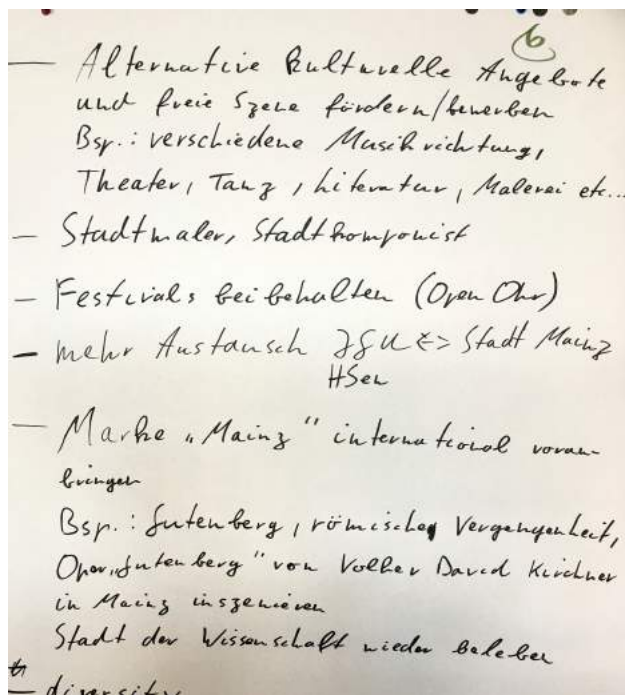 6
— Alternative kulturelle Angebote
und freie Szene fördern/bewerben
Bsp.: verschiedene Musikrichtung,
Theater, Tanz, Literatur, Malerei etc...
— Stadtmaler, Stadtkomponist
— Festivals beibehalten (Open Ohr)
— mehr Austausch JGU <=> Stadt Mainz
HSen
— Marke „Mainz" international voran-
bringen
Bsp.: Gutenberg, römische Vergangenheit,
Oper „Gutenberg" von Volker David Kirchner
in Mainz inszenieren
Stadt der Wissenschaft wieder beleben
— diversity